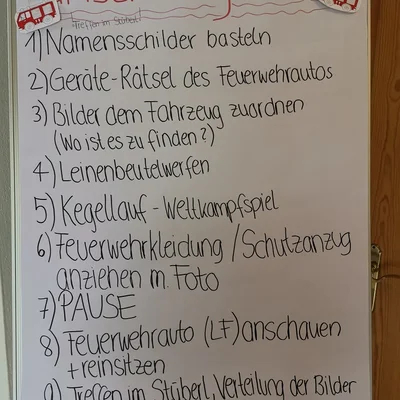 -Treffen im Stüberl!
1) Namensschilder basteln
2) Geräte-Rätsel des Feuerwehrautos
3) Bilder dem Fahrzeug zuordnen
(Wo ist es zu finden?)
4) Leinenbeutelwerfen
5) Kegellauf - Wettkampfspiel
6) Feuerwehrkleidung / Schutzanzug
anziehen m. Foto
7) PAUSE
8) Feuerwehrauto (LF) anschauen
+ reinsitzen
9) Treffen im Stüberl, Verteilung der Bilder